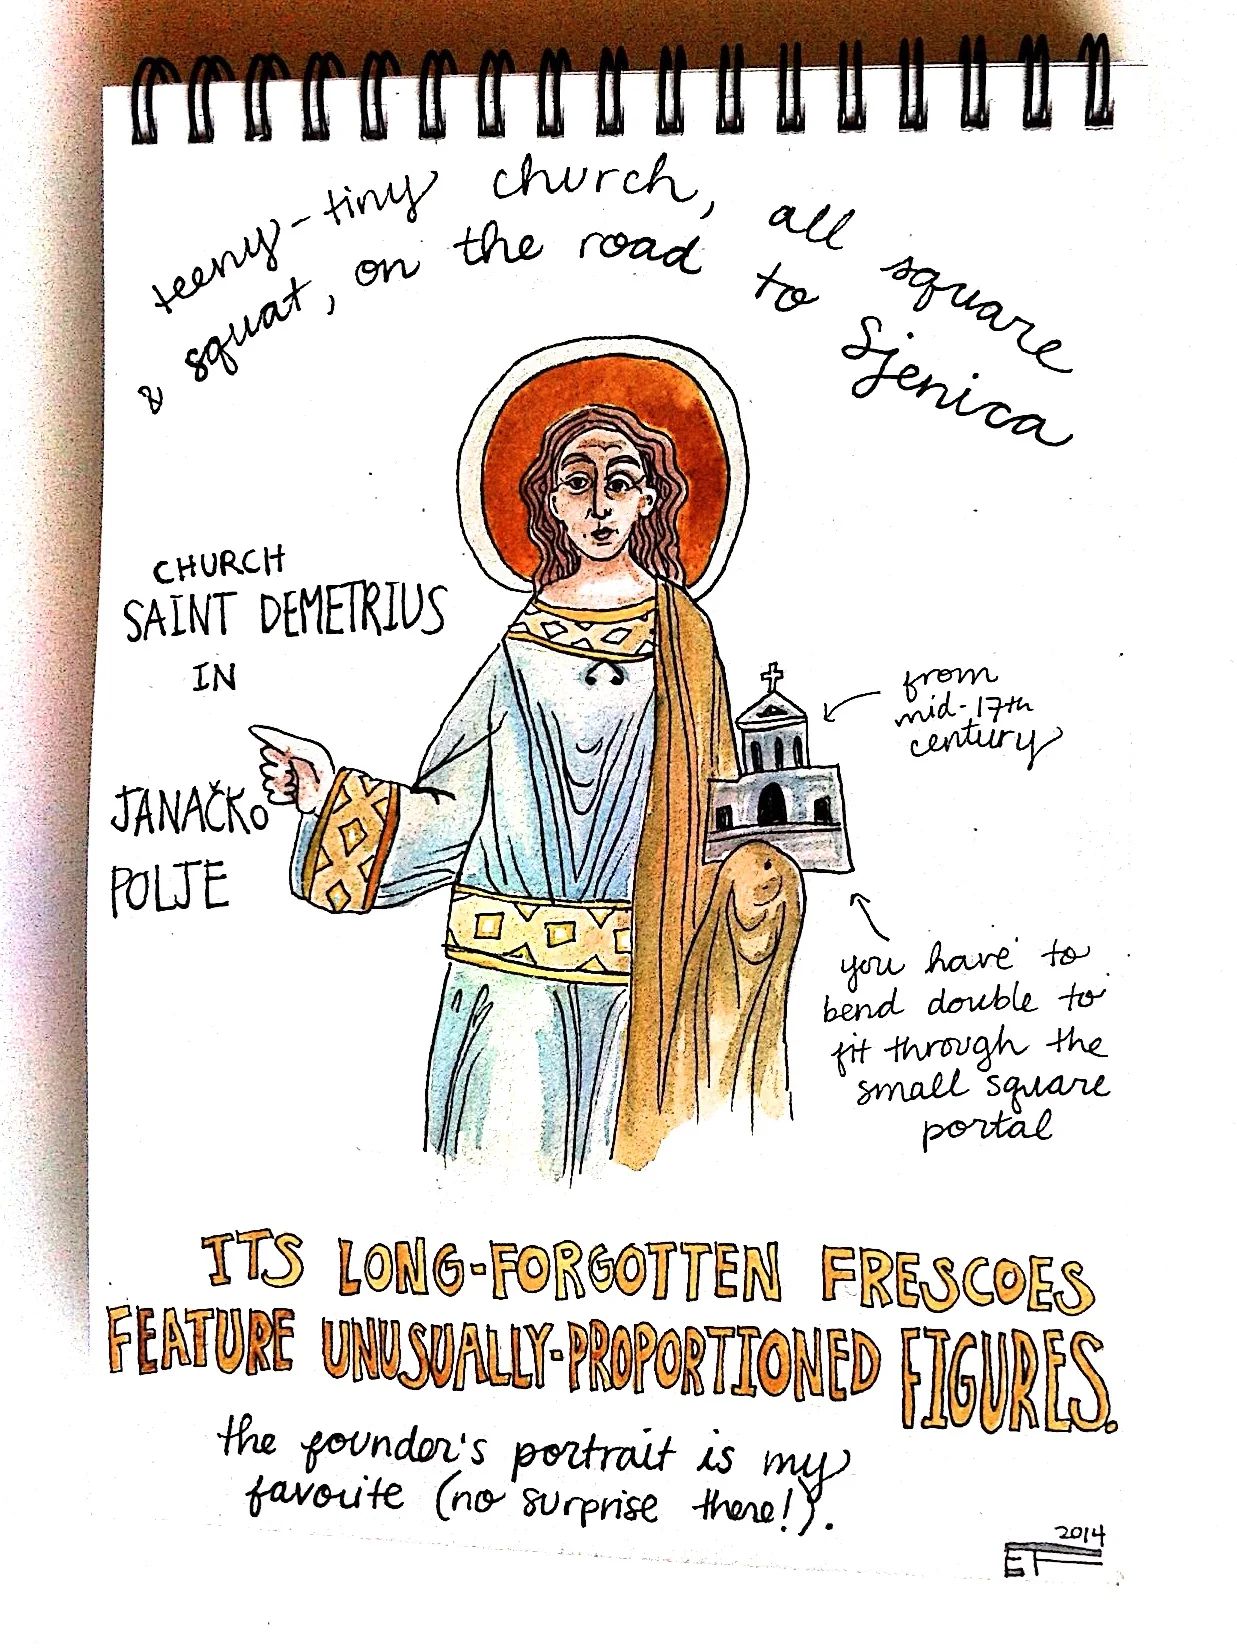 teeny-tiny church, all square
& squat, on the road to Sjenica
CHURCH
SAINT DEMETRIUS
IN
JANAČKO
POLJE
from
mid-17th
century
you have to
bend double to
fit through the
small square
portal
ITS LONG-FORGOTTEN FRESCOES
FEATURE UNUSUALLY-PROPORTIONED FIGURES.
the founder's portrait is my
favorite (no surprise there!).
2014
ET